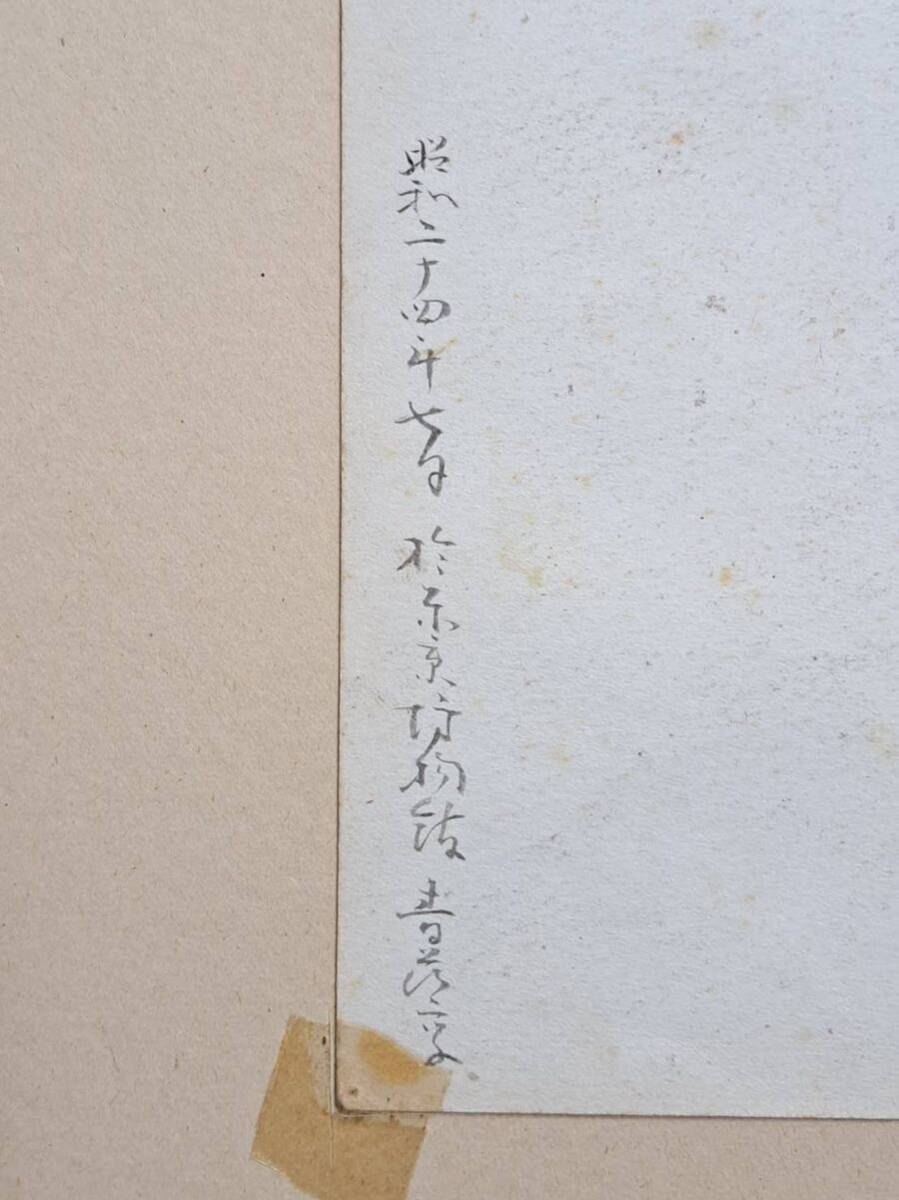 昭和二十四年七月 於東京博物館 青邨写